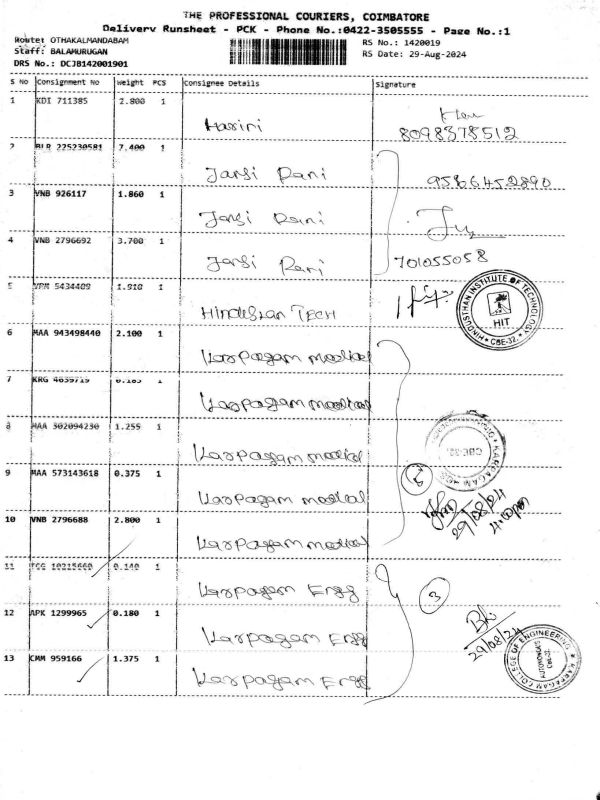 THE PROFESSIONAL COURIERS, COIMBATORE
Delivery Runsheet - PCK - Phone No.:0422-3505555 - Page No.:1
Route: OTHAKALMANDABAM
RS No.: 1420019
Staff: BALAMURUGAN
RS Date: 29-Aug-2024
DRS No.: DCJB142001901
S No Consignment No Weight PCS Consignee Details Signature
1 KDI 711385 2.800 1
Harini
8098378512
2 BLR 225230581 7.400 1
Jansi Rani 9586452890
3 VNB 926117 1.860 1
Jansi Rani
4 VNB 2796692 3.700 1
Jansi Rani 701055058
5 VPM 5434409 1.910 1
Hindustan TECH
HINDUSTHAN INSTITUTE OF TECHNOLOGY
HIT
* CBE-32. *
6 MAA 943498440 2.100 1
Karpagam medical
7 KRG 4659719 0.185 1
Karpagam medical
8 MAA 302094230 1.255 1
Karpagam medical
KARPAGAM
CBE-32.
9 MAA 573143618 0.375 1
Karpagam medical
29/08/24
10 VNB 2796688 2.800 1
Karpagam medical
11 TCG 10215660 0.140 1
Karpagam Engg
3
12 APK 1299965 0.180 1
Karpagam Engg
29/08/24
13 CMM 959166 1.375 1
Karpagam Engg
KARPAGAM COLLEGE OF ENGINEERING